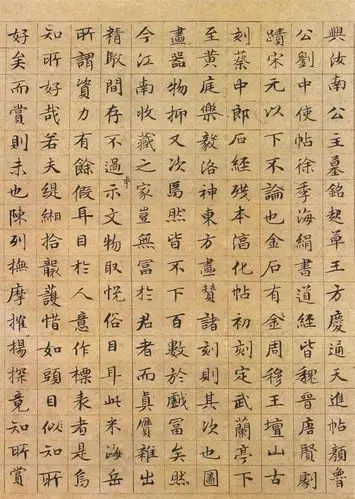 興汝南公主墓銘起草王方慶通天進帖顏魯
公劉中使帖徐季海絹書道經皆魏晉唐賢劇
蹟宋元以下不論也金石有金周穆王壇山古
刻蔡中郎石經殘本淳化帖初刻定武蘭亭下
至黃庭樂毅洛神東方畫贊諸刻則其次也圖
畫器物抑又次焉然皆不下百數於戲富矣然
今江南收藏之家豈無富於君者而真贗雜出
精駁間存不過示文物取悅俗目耳此米海岳
所謂資力有餘假耳目於人意作標表者是烏
知所好哉若夫緹緗拾襲護惜如頭目似知所
好矣而賞則未也陳列撫摩搉揚探竟知所賞